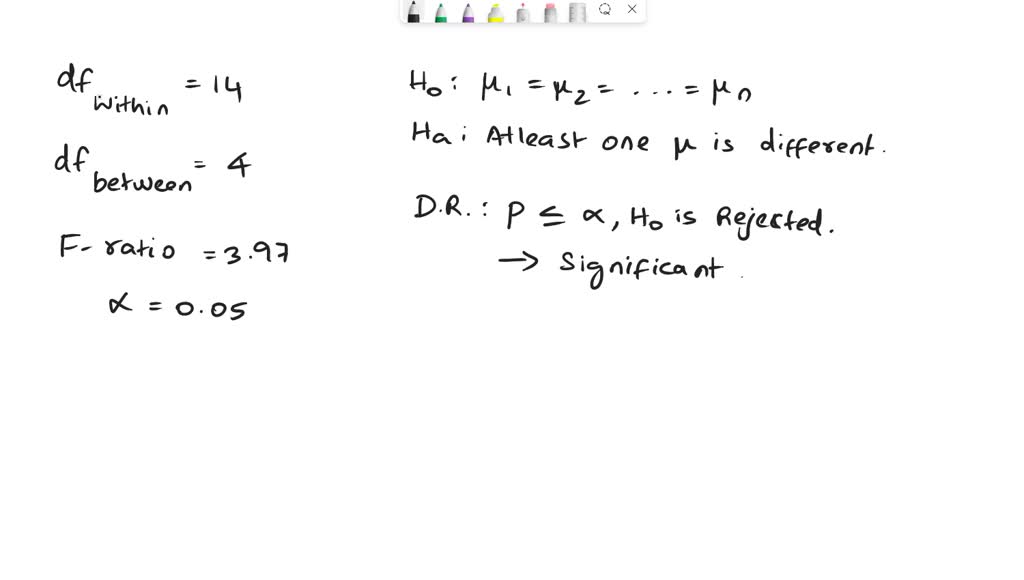 df within = 14
df between = 4
F-ratio = 3.97
α = 0.05
H0: μ1 = μ2 = .... = μn
Ha: Atleast one μ is different.
D.R.: P ≤ α, H0 is Rejected.
→ Significant.